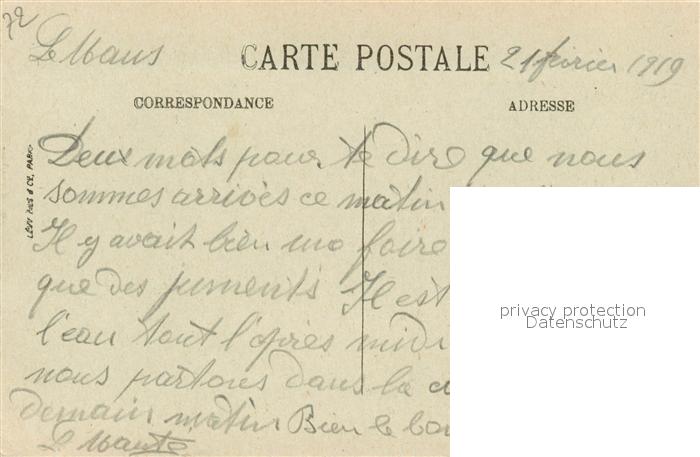 72
Le Mans
CARTE POSTALE
21 février 1919
CORRESPONDANCE
ADRESSE
LÉVY FILS & CIE, PARIS
Deux mots pour te dire que nous
sommes arrivés ce matin
Il y avait bien une foire
que des juments Il est
l'eau tout l'après midi
nous partons dans la
demain matin Bien le
privacy protection
Datenschutz